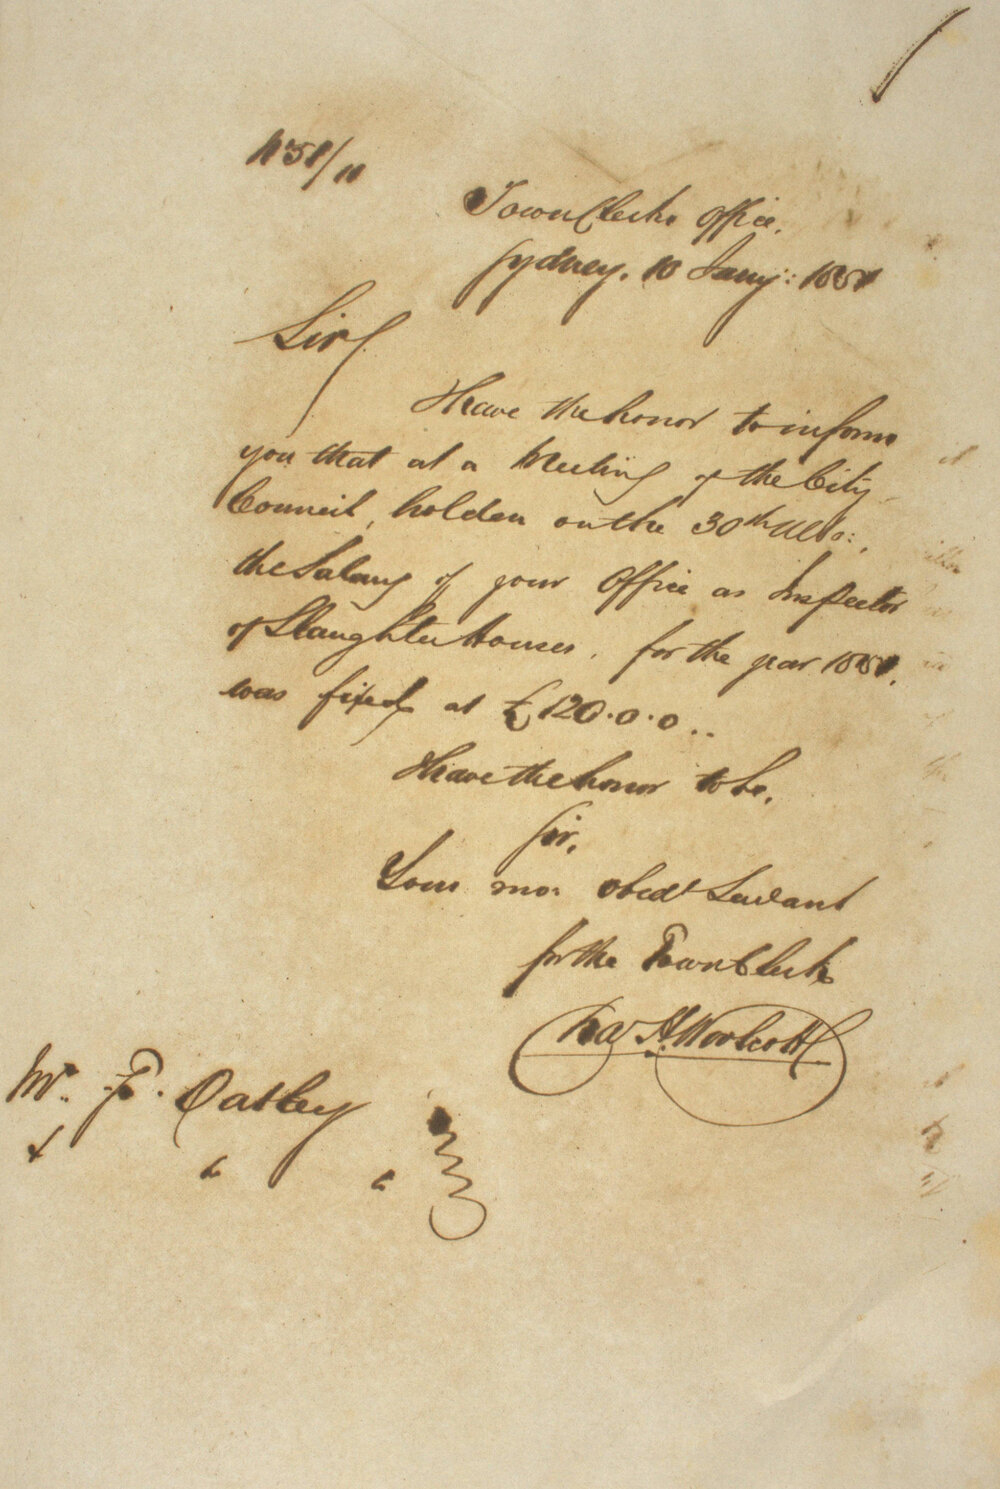 No 51/11
Town Clerks Office.
Sydney. 10 Jany: 1851
Sir/
I Have the honor to inform
you that at a Meeting of the City
Council, holden on the 30th Ulto:,
the Salary of your Office as Inspector
of Slaughter Houses, for the year 1851,
was fixed at £120.0.0..
I Have the honor to be,
Sir,
Your mo: obedt Servant
for the Town Clerk
Chas H. Woolcott
Mr. F. Oatley